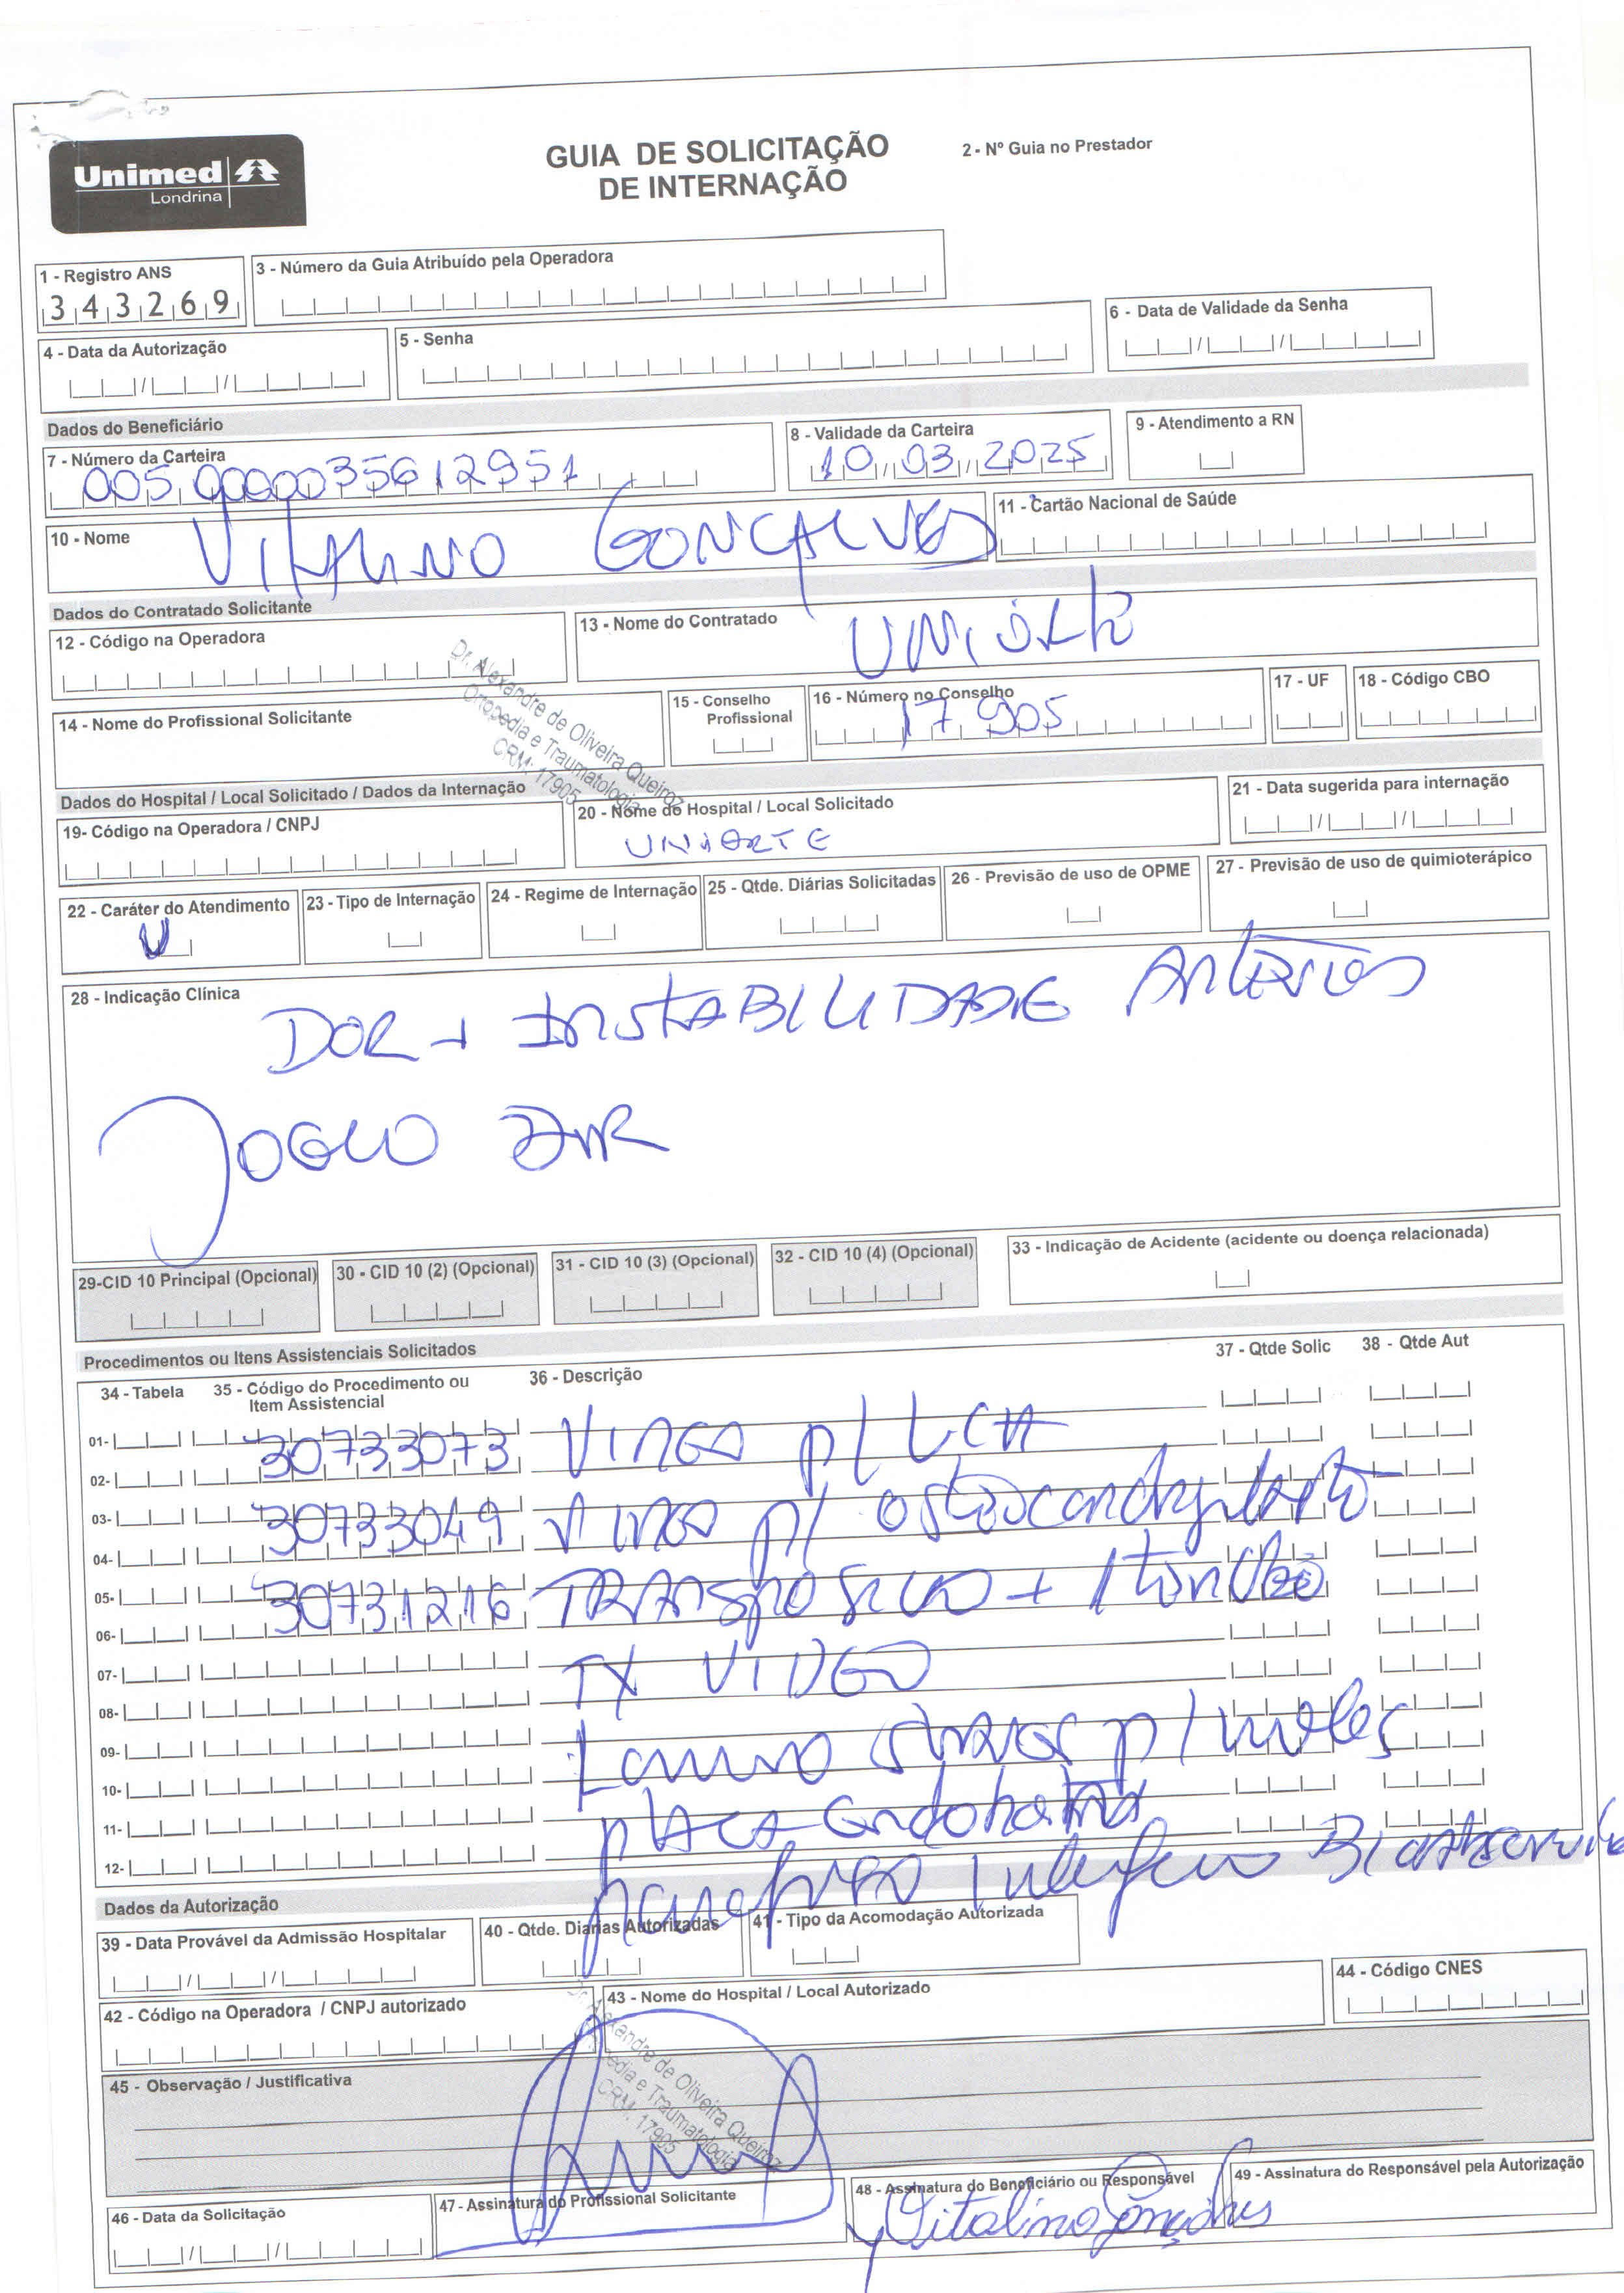 Unimed
Londrina
GUIA DE SOLICITAÇÃO
DE INTERNAÇÃO
2 - Nº Guia no Prestador
1 - Registro ANS
343269
3 - Número da Guia Atribuído pela Operadora
4 - Data da Autorização
5 - Senha
6 - Data de Validade da Senha
Dados do Beneficiário
7 - Número da Carteira
005 0000035612951
8 - Validade da Carteira
10 03 2025
9 - Atendimento a RN
10 - Nome
VITALINO GONÇALVES
11 - Cartão Nacional de Saúde
Dados do Contratado Solicitante
12 - Código na Operadora
13 - Nome do Contratado
14 - Nome do Profissional Solicitante
Dr. Alexandre de Oliveira Queiroz
Ortopedia e Traumatologia
CRM: 17905
15 - Conselho Profissional
16 - Número no Conselho
17905
17 - UF
18 - Código CBO
Dados do Hospital / Local Solicitado / Dados da Internação
19- Código na Operadora / CNPJ
20 - Nome do Hospital / Local Solicitado
UNIORTE
21 - Data sugerida para internação
22 - Caráter do Atendimento
U
23 - Tipo de Internação
24 - Regime de Internação
25 - Qtde. Diárias Solicitadas
26 - Previsão de uso de OPME
27 - Previsão de uso de quimioterápico
28 - Indicação Clínica
DOR + INSTABILIDADE
JOELHO
29-CID 10 Principal (Opcional)
30 - CID 10 (2) (Opcional)
31 - CID 10 (3) (Opcional)
32 - CID 10 (4) (Opcional)
33 - Indicação de Acidente (acidente ou doença relacionada)
Procedimentos ou Itens Assistenciais Solicitados
34 - Tabela
35 - Código do Procedimento ou
Item Assistencial
36 - Descrição
37 - Qtde Solic
38 - Qtde Aut
01-
02-
30733073 VIDEO p/ LCA
03-
04-
30733049 VIDEO p/
05-
06-
30731216
07-
TX VIDEO
08-
09-
10-
p/
11-
PLACA
12-
Dados da Autorização
39 - Data Provável da Admissão Hospitalar
40 - Qtde. Diarias Autorizadas
41 - Tipo da Acomodação Autorizada
42 - Código na Operadora / CNPJ autorizado
43 - Nome do Hospital / Local Autorizado
44 - Código CNES
45 - Observação / Justificativa
Dr. Alexandre de Oliveira Queiroz
Ortopedia e Traumatologia
CRM: 17905
46 - Data da Solicitação
47 - Assinatura do Profissional Solicitante
48 - Assinatura do Beneficiário ou Responsável
Vitalino Gonçalves
49 - Assinatura do Responsável pela Autorização